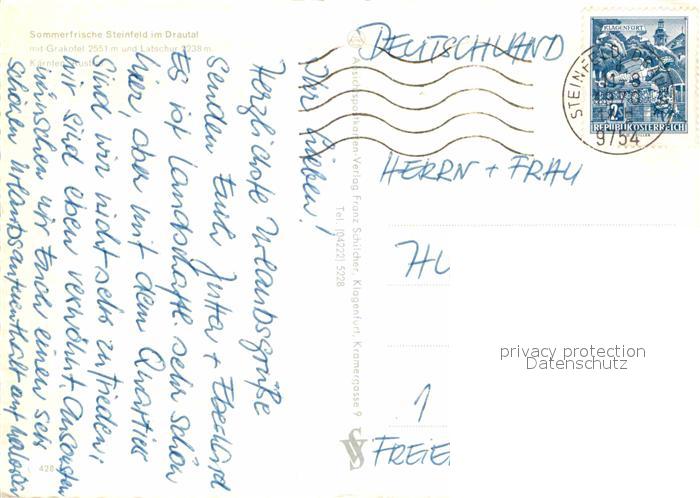 Sommerfrische Steinfeld im Drautal
mit Grakofel 2551 m und Latschur 2238 m
Kärnten
428
Ihr Lieben!
Herzlichste Urlaubsgrüße
senden Euch Jutta + Eberhard
Es ist landschaftl. sehr schön
hier, aber mit dem Quartier
sind wir nicht sehr zufrieden;
wir sind eben verwöhnt. Ansonsten
wünschen wir Euch einen sehr
schönen Urlaubsaufenthalt auf
Ansichtspostkarten-Verlag Franz Schilcher, Klagenfurt, Kramergasse 9
Tel. (04222) 5228
DEUTSCHLAND
KLAGENFURT
2S
REPUBLIK ÖSTERREICH
STEINFELD
9754
HERRN + FRAU
HU
1
FREIE
privacy protection
Datenschutz